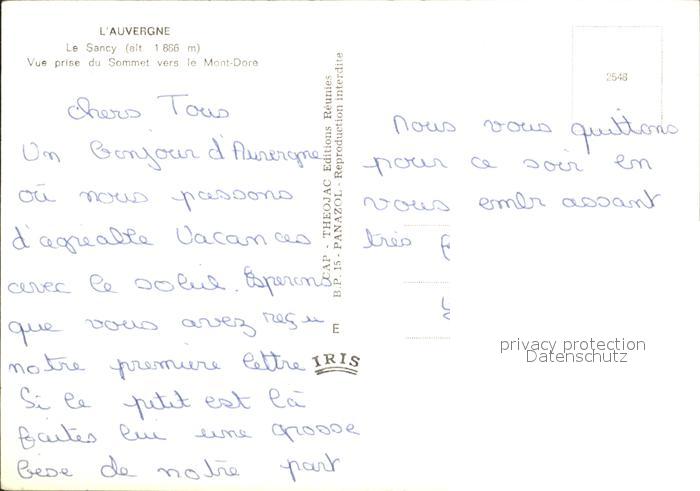 L'AUVERGNE
Le Sancy (alt. 1 886 m)
Vue prise du Sommet vers le Mont-Dore
chers Tous
Un Bonjour d'Auvergne
où nous passons
d'agréable Vacances
avec le soleil. Esperons
que vous avez reçu
notre premiere lettre
Si le petit est là
faites lui une grosse
bise de notre part
CAP - THEOJAC Editions Réunies
B.P. 15 - PANAZOL - Reproduction interdite
E
IRIS
2548
Nous vous quittons
pour ce soir en
vous embrassant
très
privacy protection
Datenschutz